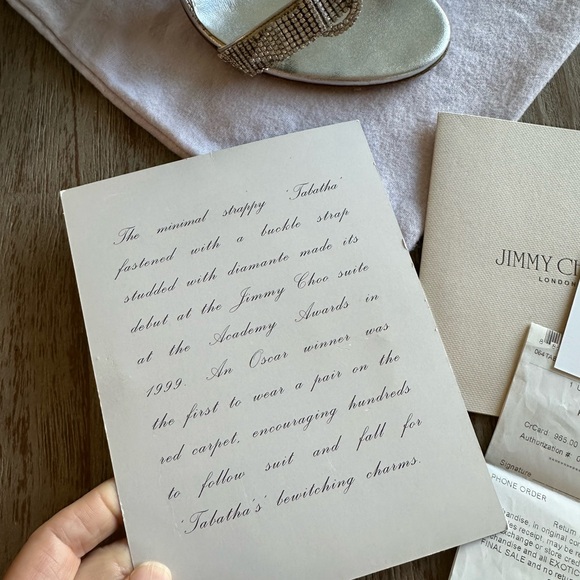 The minimal strappy 'Tabatha'
fastened with a buckle strap
studded with diamante made its
debut at the Jimmy Choo suite
at the Academy Awards in
1999. An Oscar winner was
the first to wear a pair on the
red carpet, encouraging hundreds
to follow suit and fall for
'Tabatha's' bewitching charms.
JIMMY
LONDON
CrCard 965.00
Authorization #:
Signature
PHONE ORDER
Return
in original
receipt, may be
exchange or store
and all
FINAL SALE and no